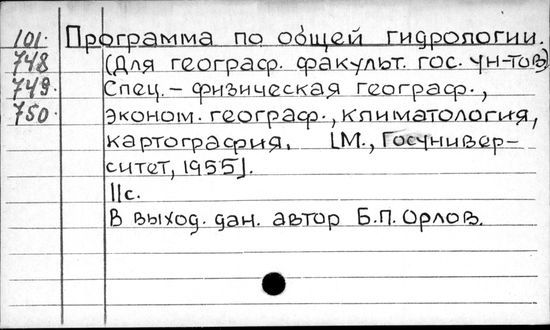 101. Программа по общей гидрологии.
748 (Для географ. факульт. гос. ун-тов)
749. Спец. - физическая географ.,
750. эконом. географ., климатология,
картография. [М., Госунивер-
ситет, 1955].
11с.
В выход. дан. автор Б.П. Орлов.